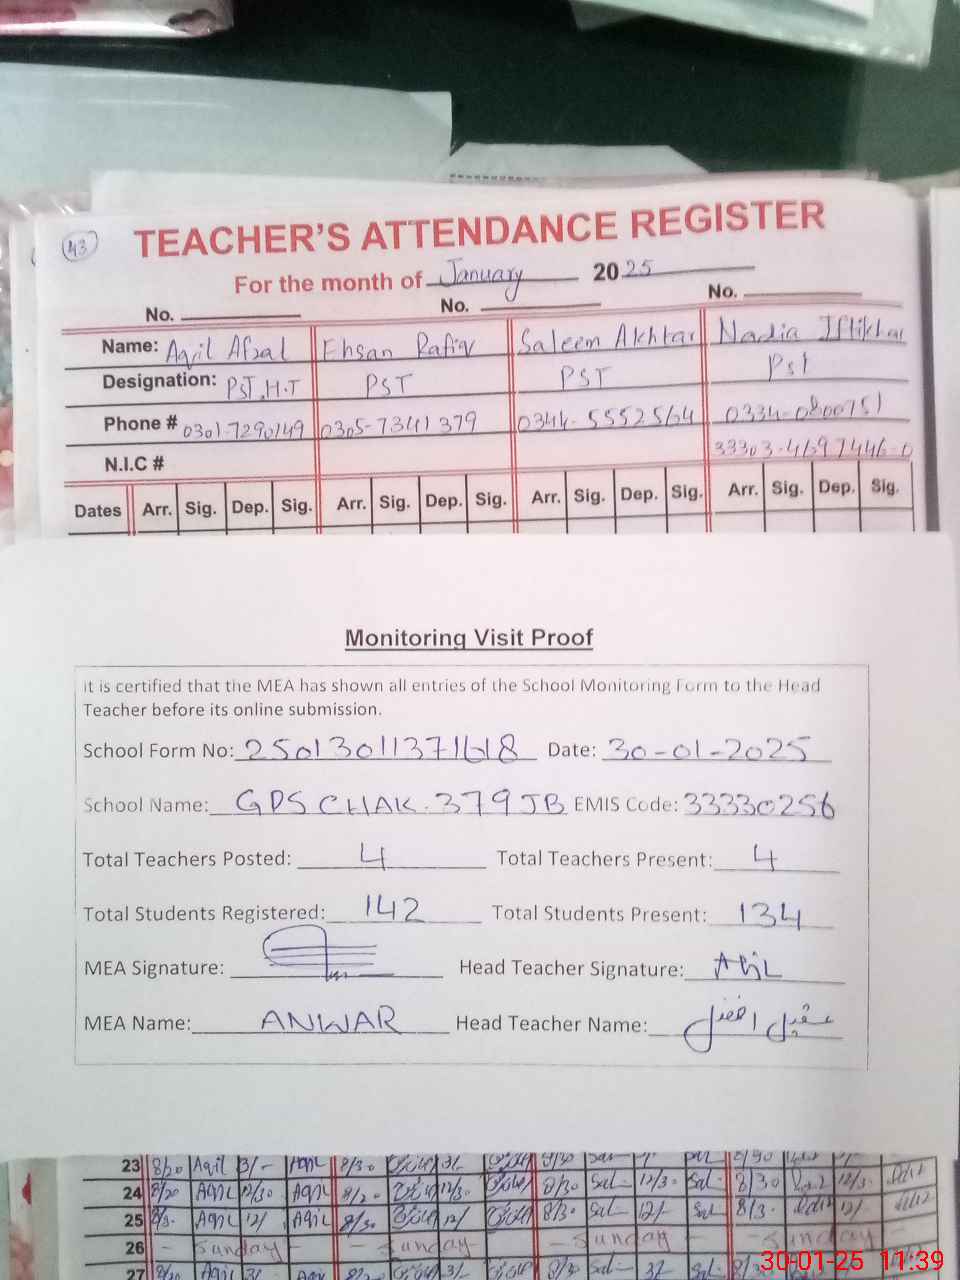 43
TEACHER'S ATTENDANCE REGISTER
For the month of January 2025
No. No. No.
Name: Aqil Afzal Ehsan Rafiq Saleem Akhtar Nadia Iftikhar
Designation: PST.H.T PST PST Pst
Phone # 0301-7290149 0305-7341379 0344-5552564 0334-0800751
N.I.C # 33303-4697446-0
Dates Arr. Sig. Dep. Sig. Arr. Sig. Dep. Sig. Arr. Sig. Dep. Sig. Arr. Sig. Dep. Sig.
Monitoring Visit Proof
it is certified that the MEA has shown all entries of the School Monitoring Form to the Head
Teacher before its online submission.
School Form No: 25013011371618 Date: 30-01-2025
School Name: GPS CHAK.379 JB EMIS Code: 33330256
Total Teachers Posted: 4 Total Teachers Present: 4
Total Students Registered: 142 Total Students Present: 134
MEA Signature: Head Teacher Signature: Aqil
MEA Name: ANWAR Head Teacher Name: عقیل افضل
23 8/20 Aqil 3/- Aqil 8/30 3/- 8/30 Sal-
24 8/20 Aqil 12/30 Aqil 8/20 12/30 8/30 Sal- 12/30 Sal- 8/30 12/30
25 8/30 Aqil 12/ Aqil 8/30 12/ 8/30 Sal- 12/- Sal 8/30 12/-
26 - Sunday - - Sunday - Sunday - - Sunday
27 8/20 Aqil 3/- Aqil 8/20 3/- 8/30 Sal- 3/- Sal-
30-01-25 11:39